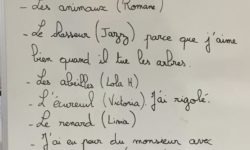 - Les animaux (Romane)
- Le chasseur (Jazz) parce que j'aime
bien quand il tue les arbres.
- Les abeilles (Lola H)
- L'écureuil (Victoria). J'ai rigolé.
- Le renard (Lina)
- J'ai eu peur du monsieur avec